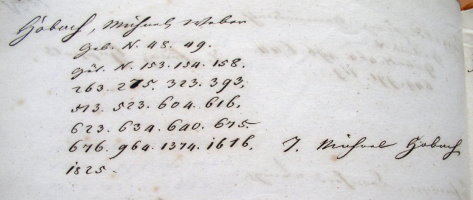 Höbach, Michael Weber
Geb. N. 48. 49.
Gül. N. 153. 154. 158.
263. 275. 323. 393,
513. 523. 604. 616,
623. 639. 640. 675.
676. 964. 1374. 1616, J. Michael Höbach
1825.